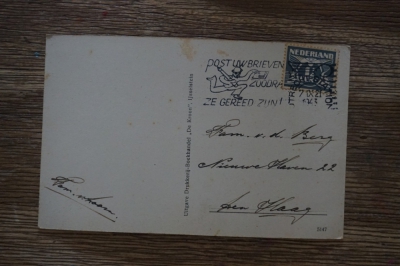 POST UW BRIEVEN
ZOODRA
ZE GEREED ZIJN!
NEDERLAND
Fam. v. d. Berg
Nieuwe Haven 22
Den Haag
Uitgave Drukkerij-Boekhandel „De Kroon", IJsselstein